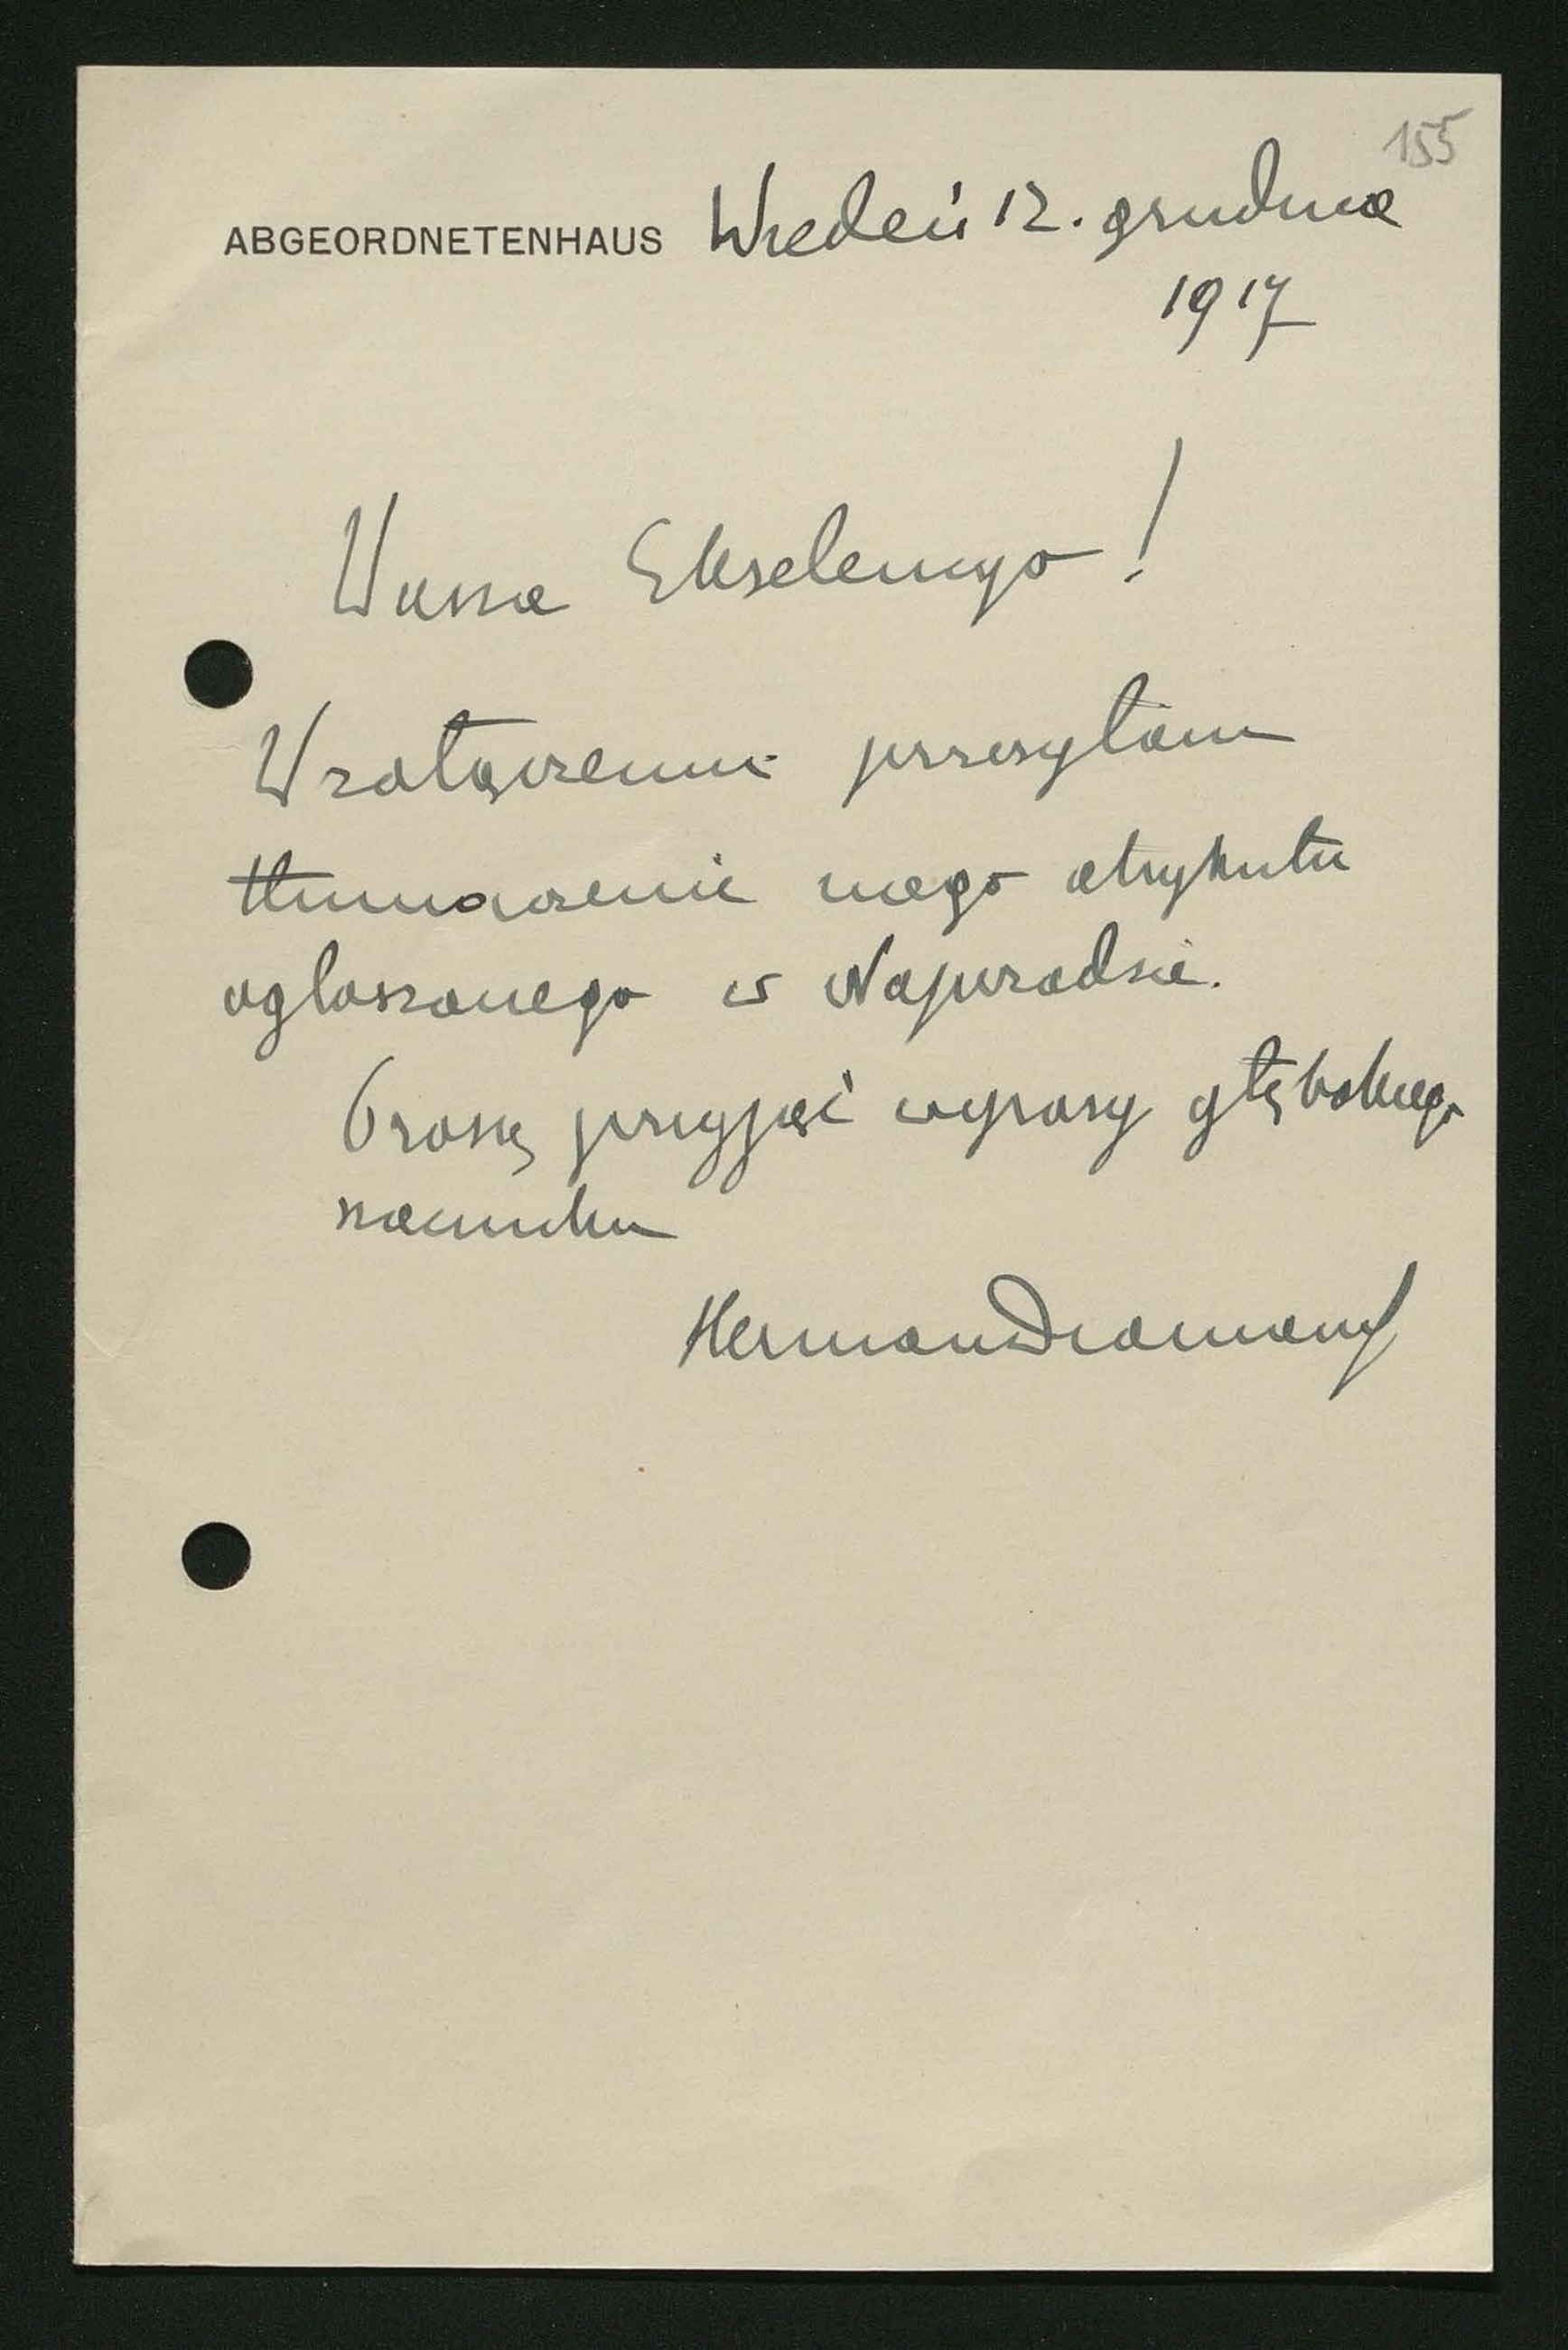 155
ABGEORDNETENHAUS Wiedeń 12. grudnia
1917
Wasza Ekselencyo!
W załączeniu przesyłam
tłumaczenie mego atrykułu
ogłoszonego w Naprzodzie.
Proszę przyjąć wyrazy głębokiego
szacunku
Herman Diamand